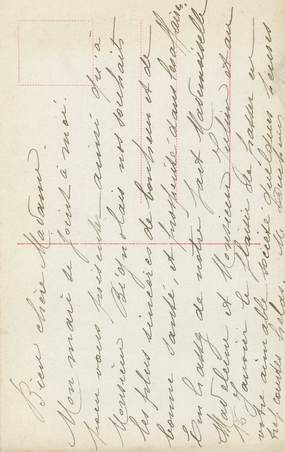 Bien chère Madame.
Mon mari se joint à moi
pour vous présenter ainsi qu'à
Monsieur nos souhaits
les plus sincères de bonheur et de
bonne santé, et prospérité dans les affaires.
Embrassez de notre part Mademoiselle
Madeleine et Monsieur et au
Janvier le plaisir de passer en
votre aimable société quelques heures